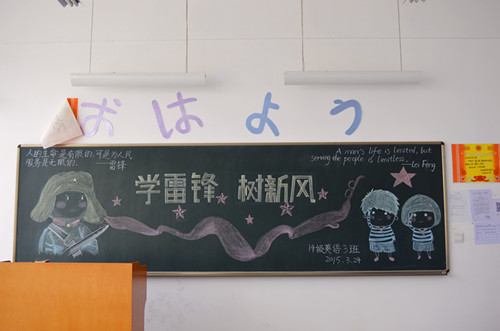 おはよう
人的生命是有限的,可是为人民
服务是无限的.
——雷锋
A man's life is limited, but
serving the people is limitless.
——Lei Feng
学雷锋 树新风
14级英语3班
2015.3.24